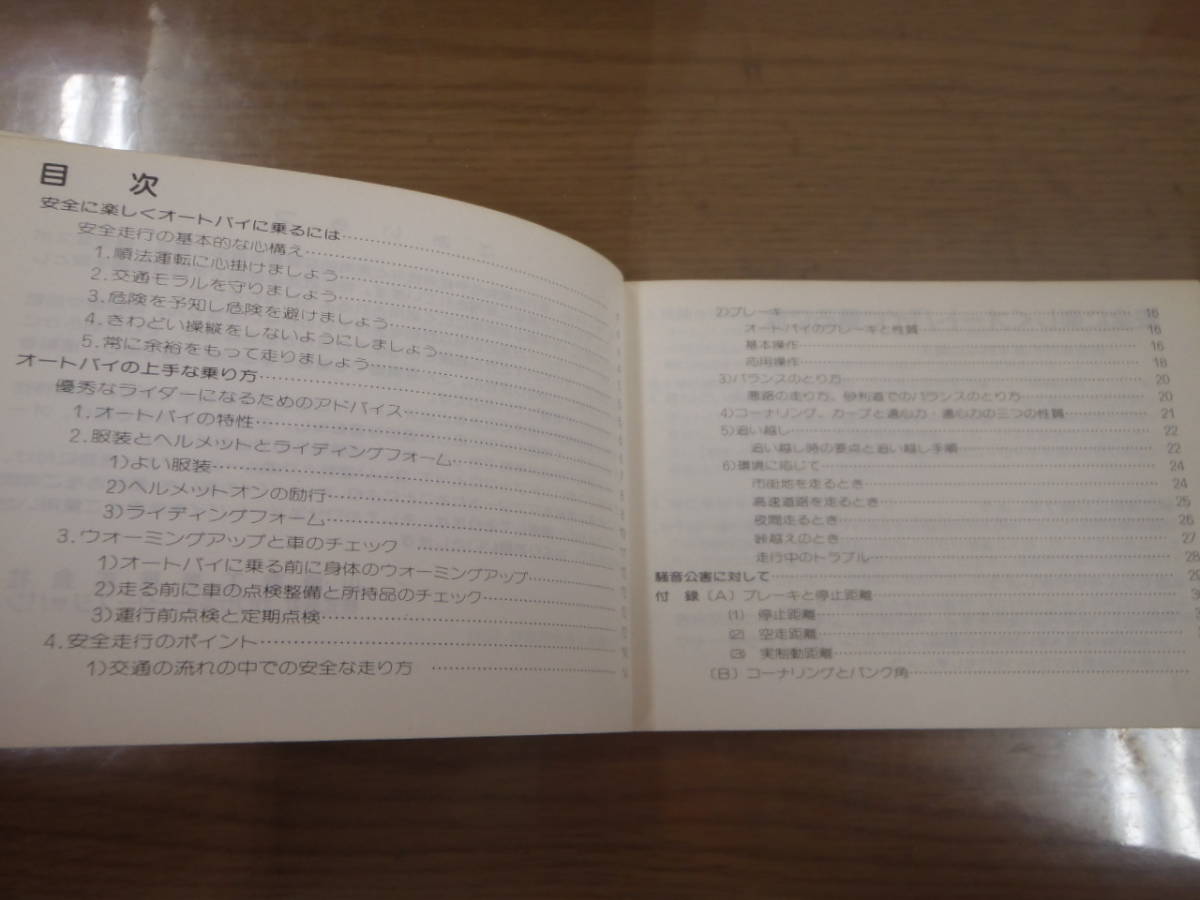 目 次
安全に楽しくオートバイに乗るには
安全走行の基本的な心構え
1.順法運転に心掛けましよう
2.交通モラルを守りましよう
3.危険を予知し危険を避けましよう
4.きわどい操縦をしないようにしましよう
5.常に余裕をもって走りましよう
オートバイの上手な乗り方
優秀なライダーになるためのアドバイス
1.オートバイの特性
2.服装とヘルメットとライディングフォーム
1)よい服装
2)ヘルメットオンの励行
3)ライディングフォーム
3.ウオーミングアップと車のチェック
1)オートバイに乗る前に身体のウオーミングアップ
2)走る前に車の点検整備と所持品のチェック
3)運行前点検と定期点検
4.安全走行のポイント
1)交通の流れの中での安全な走り方
2)ブレーキ 16
オートバイのブレーキと性質 16
基本操作 16
応用操作 18
3)バランスのとり方 20
悪路の走り方、砂利道でのバランスのとり方 20
4)コーナリング、カーブと遠心力・遠心力の三つの性質 21
5)追い越し 22
追い越し時の要点と追い越し手順 22
6)環境に応じて 24
市街地を走るとき 24
高速道路を走るとき 25
夜間走るとき 26
峠越えのとき 27
走行中のトラブル 28
騒音公害に対して 29
付 録〔A〕ブレーキと停止距離
(1) 停止距離
(2) 空走距離
(3) 実制動距離
〔B〕コーナリングとバンク角